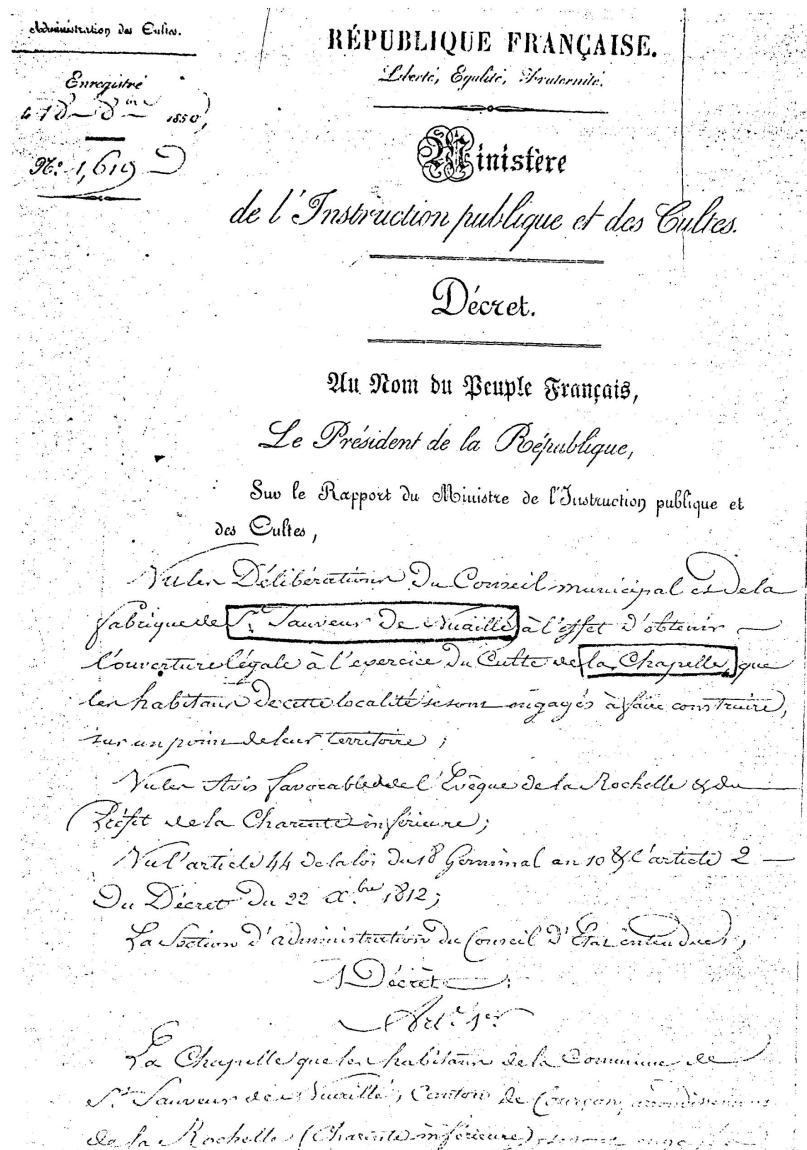 Administration des Cultes.
Enregistré
1850,
N.º 1,619 D
RÉPUBLIQUE FRANÇAISE.
Liberté, Egalité, Fraternité.
Ministère
de l'Instruction publique et des Cultes.
Décret.
Au Nom du Peuple Français,
Le Président de la République,
Sur le Rapport du Ministre de l'Instruction publique et
des Cultes,
Vu les Délibérations du Conseil municipal et de la
fabrique de St. Sauveur de Nuaillé à l'effet d'obtenir
l'ouverture légale à l'exercice du Culte de la Chapelle, que
les habitans de cette localité se sont engagés à faire construire,
sur un point de leur territoire ;
Vu les Avis favorables de l'Evêque de la Rochelle & du
Préfet de la Charente inférieure ;
Vu l'article 44 de la loi du 18 Germinal an 10 & l'article 2
Du Décret du 22 Xbre 1812 ;
La Section d'administration du Conseil d'Etat entendue,
Décrète :
Art. 1er
La Chapelle que les habitans de la Commune de
St. Sauveur de Nuaillé, Canton de Courçon, arrondissement
de la Rochelle (Charente inférieure) se sont